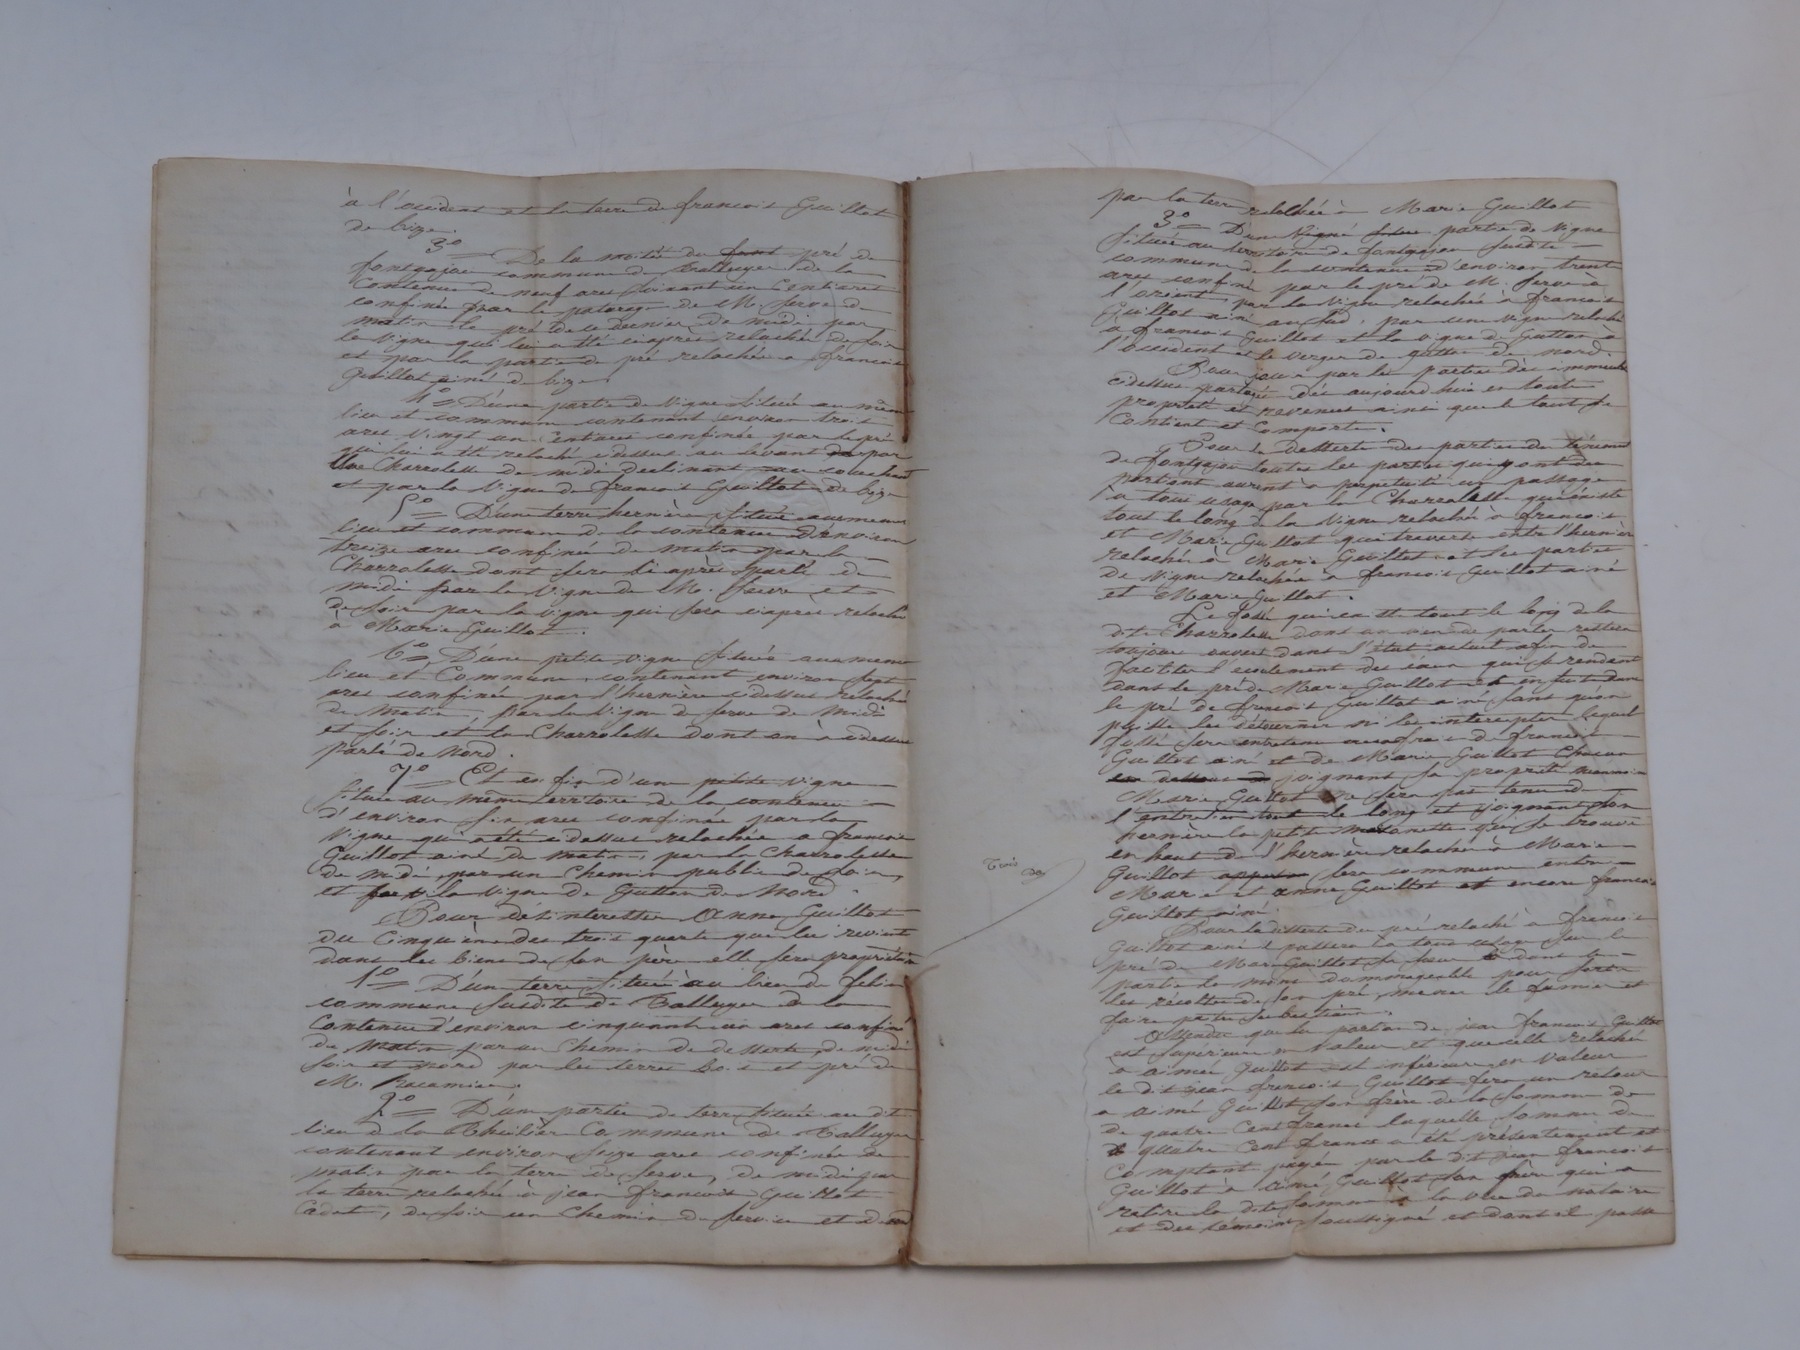 à l'occident et la terre de francois Guillot
de bize.
3° De la moitié du pré de
fontgajou commune de Talluyer de la
Contenue de neuf ares soixant un Centiares
confinée par le paturage de M. Serve de
matin le pré de ce dernier de midi par
la Vigne qui lui a été ciaprès relachée de soir
et par la partie de pré relachée a francois
Guillot ainé de bize.
4° D'une partie de Vigne située au même
lieu et commune contenant environ trois
ares Vingt un Centiares confinée par le pré
qui lui a été relaché cidessus au levant par
Une Charrolette de midi declinant au couchant
et par la Vigne de francois Guillot de bize
5° D'une terre hernière située au meme
lieu et commune de la contenue d'environ
treize ares confinée de matin par la
Charrolette dont sera ci après parlé de
midi par la Vigne de M. Serve et
de soir par la Vigne qui sera ciaprès relaché
à Marie Guillot.
6° D'une petite Vigne située au meme
lieu et Commune, contenant environ sept
ares confinée par l'hernière cidessus relachée
de matin, par la Vigne de Serve de Midi
et soir et la Charrolette dont on a cidessus
parlé de Nord.
7° Et enfin d'une petite Vigne
située au même territoire de la contenue
d'environ six ares confinée par la
Vigne qui a été cidessus relachée a francois
Guillot ainé de matin, par la Charrolette
de midi, par un Chemin public de soir,
et par la Vigne de Gutton de Nord.
Pour désinteresser Anne Guillot
du Cinquième des trois quarts que lui revient
dans les biens de son père elle sera propriétaire
1° D'une terre située au lieu de
commune susdite de Talluyer de la
Contenue d'environ cinquante un ares confiné
de Matin par un Chemin de desserte, de midi
soir et Nord par les terres bois et pré de
M. Racamier.
2° D'une partie de terre située au dit
lieu de la Commune de Talluyer
contenant environ seize ares confinée de
matin par la terre de Serve, de midi par
la terre relachée à jean francois Guillot
Cadet, de soir un Chemin de service et de nord
Trois
par la terre relachée à Marie Guillot
3° D'une partie de Vigne
située au territoire de fontgajou susdite
commune de la contenue d'environ trente
ares confiné par le pré de M. Serve à
l'orient, par la Vigne relachée à francois
Guillot ainé au Sud, par une Vigne relaché
a francois Guillot et la Vigne de Gutton à
l'occident et le Verger de gutton de nord.
Pour jouir par les parties des immeubles
cidessus partagés dès aujourd'hui en toute
propriété et revenus ainsi que le tout se
Contient et Comporte.
Pour la desserte des parties du ténement
de fontgajou toutes les parties qui y ont des
portions auront a perpétuité un passage
a tout usage par la Charrolette qui existe
tout le long de la Vigne relachée à francois
et Marie Guillot qui traverse entre l'hernière
relachée à Marie Guillot et les parties
de Vigne relachée à francois Guillot ainé
et Marie Guillot.
Le fossé qui est tout le long de la
dite Charrolette dont on vien de parler restera
toujour ouvert dans l'état actuel afin de
faciliter l'ecoulement des eaux qui se rendent
dans le pré de Marie Guillot et ensuite dans
le pré de francois Guillot ainé sans qu'on
puisse les détourner ni les intercepter lequel
fossé sera entretenu aux frais de francois
Guillot ainé et de Marie Guillot Chacun
joignant sa propriété neanmoin
Marie Guillot ne sera pas tenue de
l'entretien tout le long et joignant son
hernière la petite qui se trouve
en haut de l'hernière relachée à Marie
Guillot sera commune entre
Marie et anne Guillot et encore francois
Guillot ainé.
Pour la desserte du pré relaché à francois
Guillot ainé il passera a tous usage sur le
pré de Marie Guillot sa sœur dans la
partie la moins dommageable pour sortir
les récoltes de son pré, mener le fumier et
faire paitre ses bestiaux.
Attendu que la portion de jean francois Guillot
est superieure en Valeur et que celle relachée
a aimé Guillot est inférieure en Valeur
le dit jean francois Guillot fera un retour
a aimé Guillot son frère de la somme de
de quatre Cent francs laquelle somme de
quatre Cent francs a été présentement et
Comptant payée par le dit jean francois
Guillot à aimé Guillot son frère qui a
retiré la dite somme à la vue du notaire
et des témoins soussigné et dont il passe